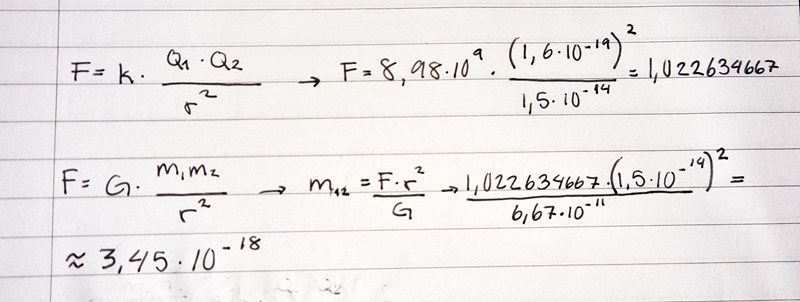 F = k · Q₁ · Q₂ / r² → F = 8,98 · 10⁹ · (1,6 · 10⁻¹⁹)² / 1,5 · 10⁻¹⁴ = 1,022634667
F = G · m₁m₂ / r² → m₁₂ = F · r² / G → 1,022634667 · (1,5 · 10⁻¹⁴)² / 6,67 · 10⁻¹¹ =
≈ 3,45 · 10⁻¹⁸